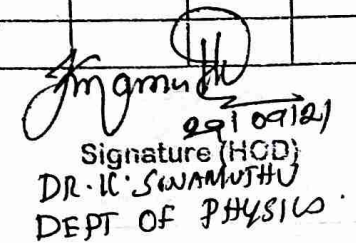 29/09/21
Signature (HOD)
DR. K. SIVAMUTHU
DEPT OF PHYSICS.